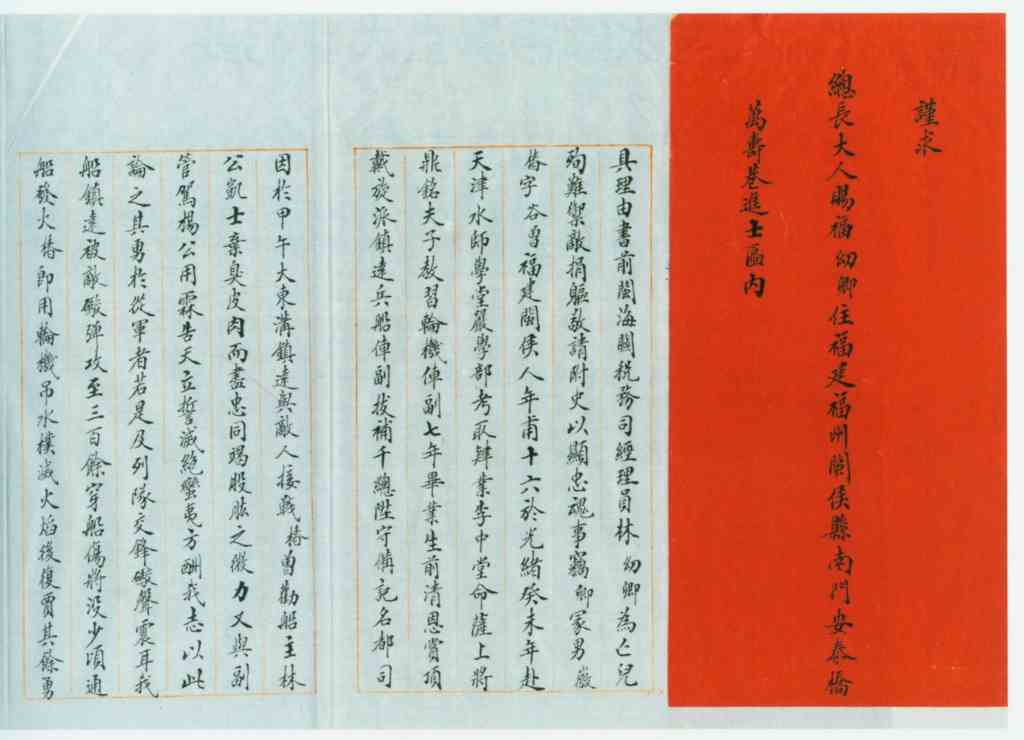 謹求
總長大人賜福幼卿住福建福州閩侯縣南門安泰橋
萬壽巷進士區內
具理由書前閩海關稅務司經理員林幼卿為亡兒
殉難禦敵捐軀敬請附史以顯忠魂事竊卿家男嚴
椿字谷曾福建閩侯人年甫十六於光緒癸未年赴
天津水師學堂嚴學部考取肄業李中堂命薩上將
鼎銘夫子教習輪機俥副七年畢業生前清恩賞頂
戴旋派鎮遠兵船俥副拔補千總陞守備記名都司
因於甲午大東溝鎮遠與敵人接戰椿曾勸船主林
公凱士棄臭皮肉而盡忠同竭股肱之微力又與副
管駕楊公用霖告天立誓滅絕蠻夷方酬我志以此
論之其勇於從軍者若是及列隊交鋒礮聲震耳我
船鎮遠被敵礮彈攻至三百餘穿船傷將沒少頃通
船發火椿即用輪機吊水撲滅火焰後復賈其餘勇